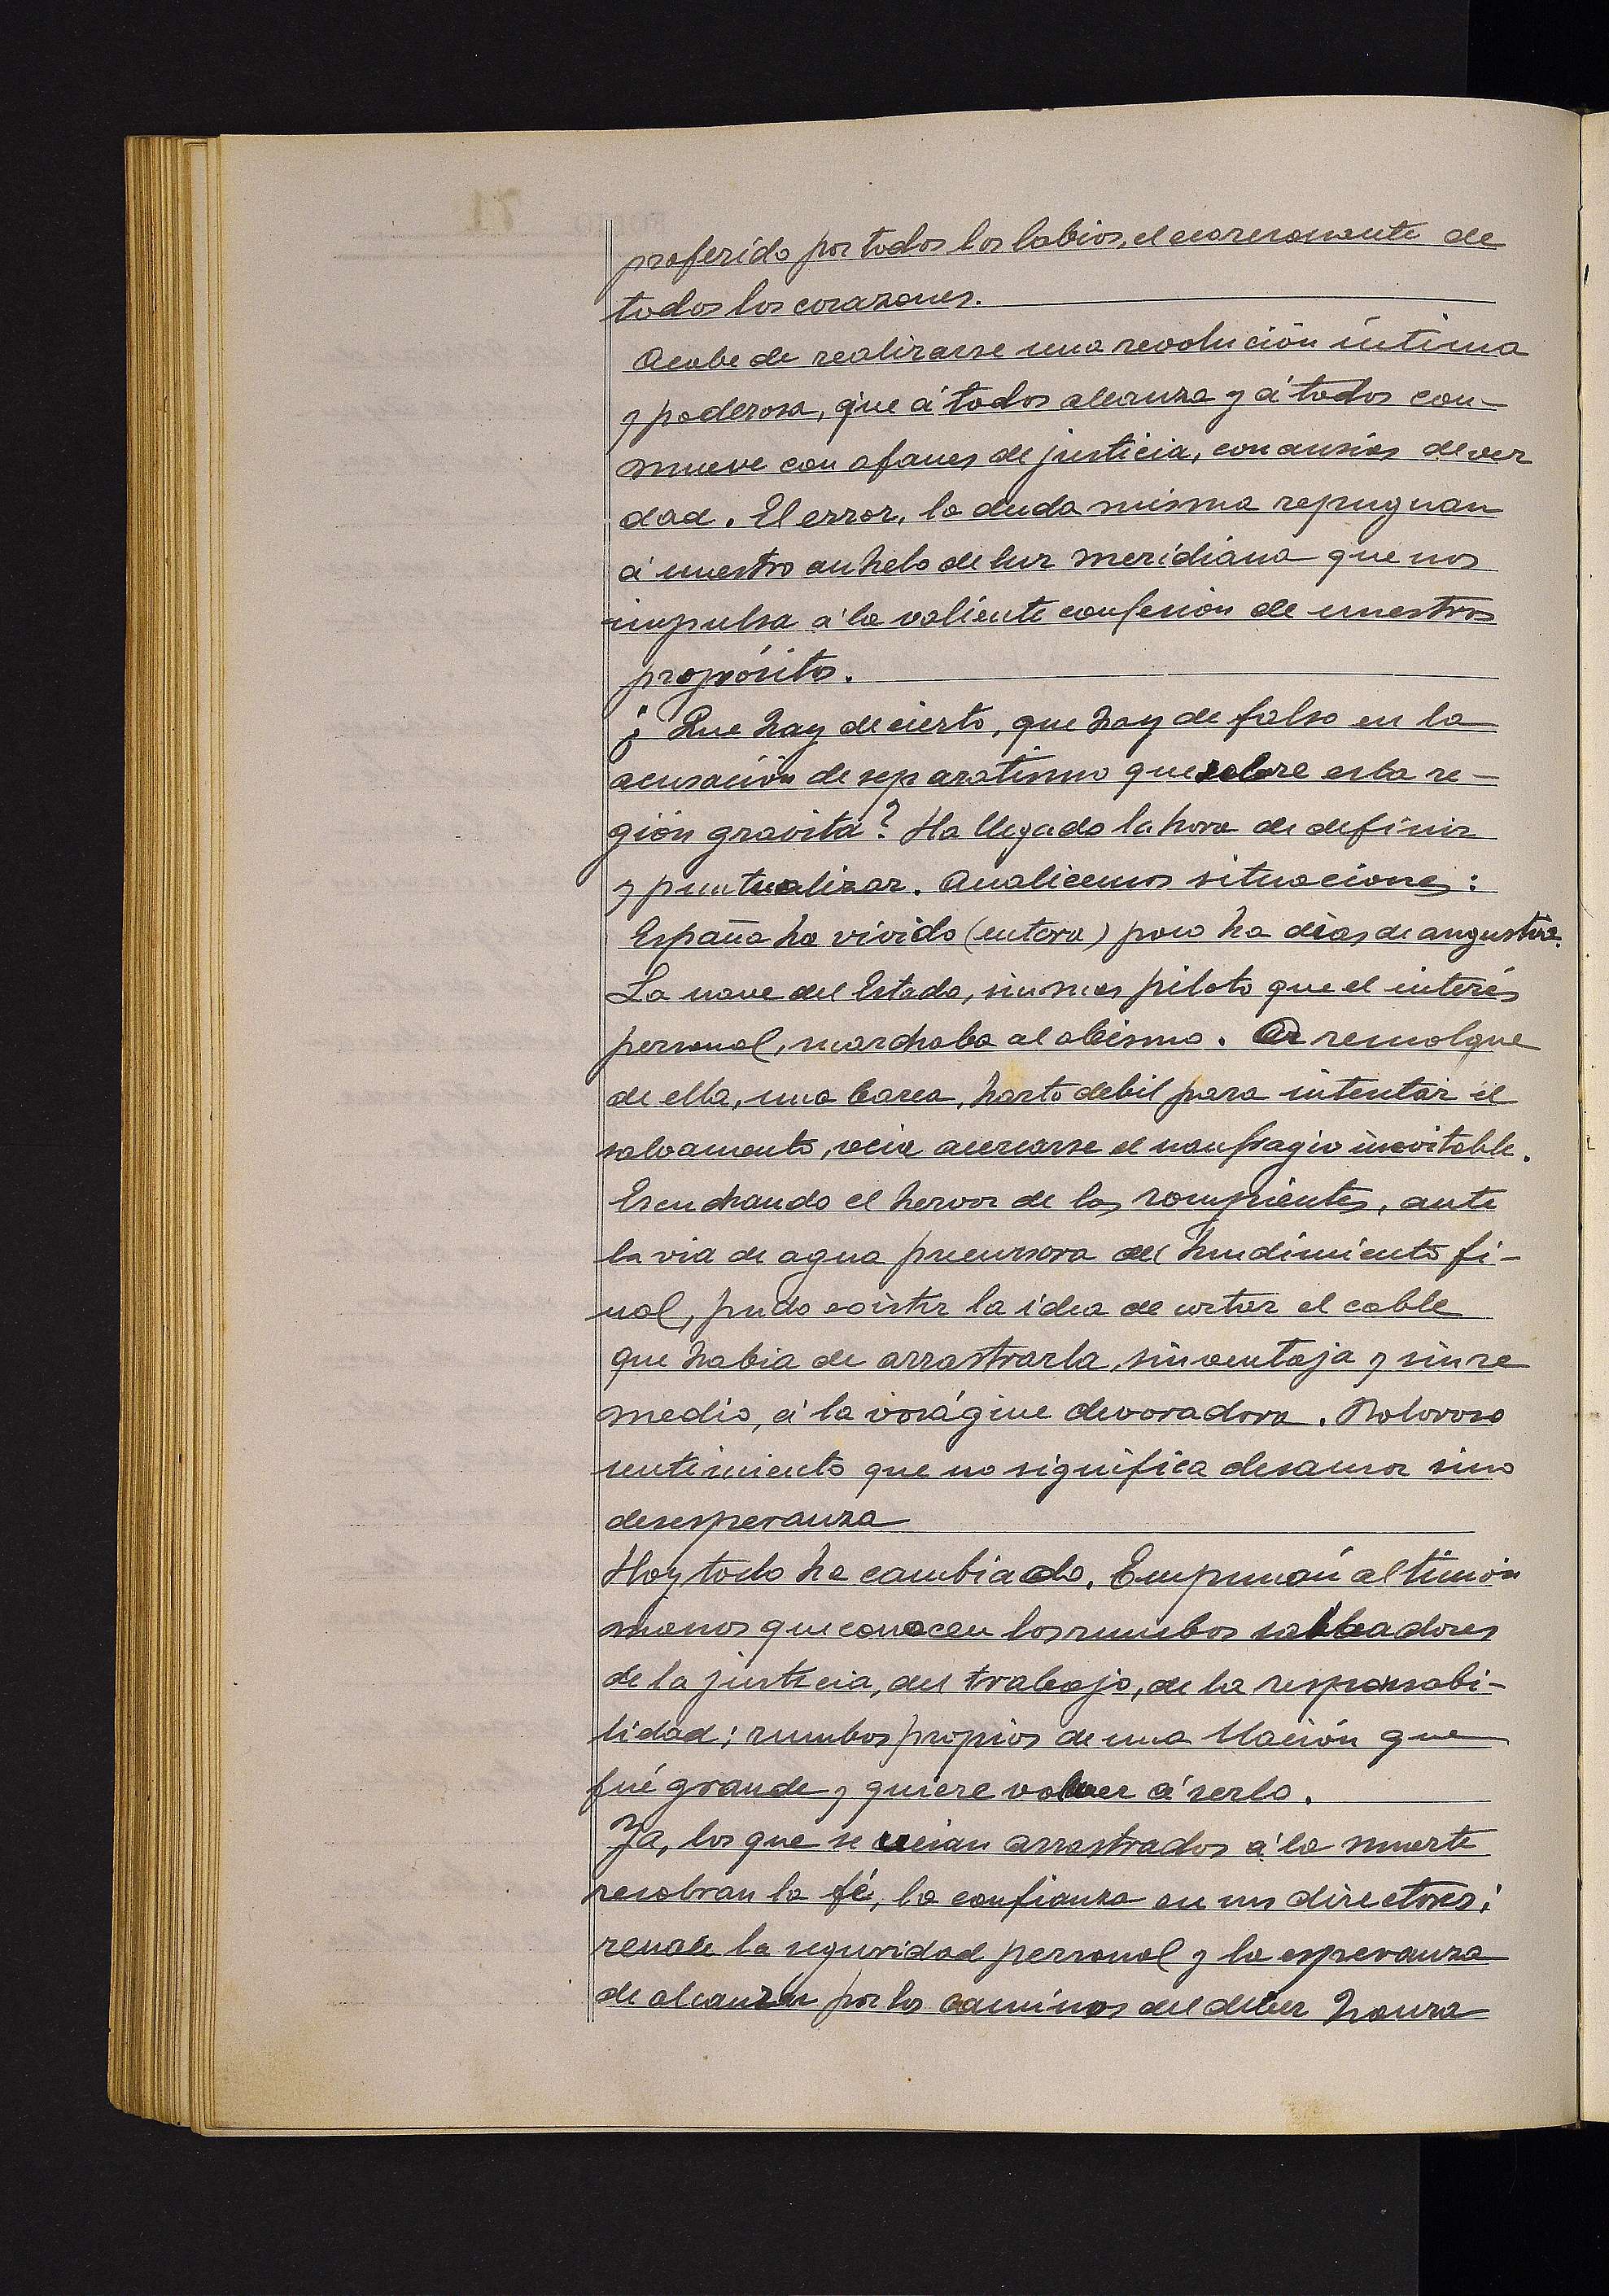 proferido por todos los labios, el eco resonante de
todos los corazones.
Acabe de realizarse una revolución íntima
y poderosa, que á todos alcanza y á todos con-
mueve con afanes de justicia, con ansias de ver
dad. El error, la duda misma repugnan
á nuestro anhelo de luz meridiana que nos
impulsa á la valiente confesión de nuestros
propósitos.
¿ Que hay de cierto, que hay de falso en la
acusación de separatismo que sobre esta re-
gión gravita? Ha llegado la hora de definir
y puntualizar. Analicemos situaciones:
España ha vivido (entera) poco ha dias de angustia.
La nave del Estado, sin mas piloto que el interés
personal, marchaba al abismo. A remolque
de ella, una barca, harto debil para intentar el
salvamento, veia acercarse el naufragio inevitable.
Escuchando el hervor de las rompientes, ante
la via de agua precursora del hundimiento fi-
nal, pudo existir la idea de cortar el cable
que habia de arrastrarla, sin ventaja y sin re
medio, á la vorágine devoradora. Doloroso
sentimiento que no significa desamor sino
desesperanza
Hoy todo ha cambiado. Empuñan al timón
manos que conocen los rumbos salvadores
de la justicia, del trabajo, de la responsabi-
lidad; rumbos propios de una Nación que
fué grande y quiere volver á serlo.
Ya, los que se veian arrastrados á la muerte
recobran la fé, la confianza en sus directores;
renace la seguridad personal y la esperanza
de alcanzar por los caminos del deber honra